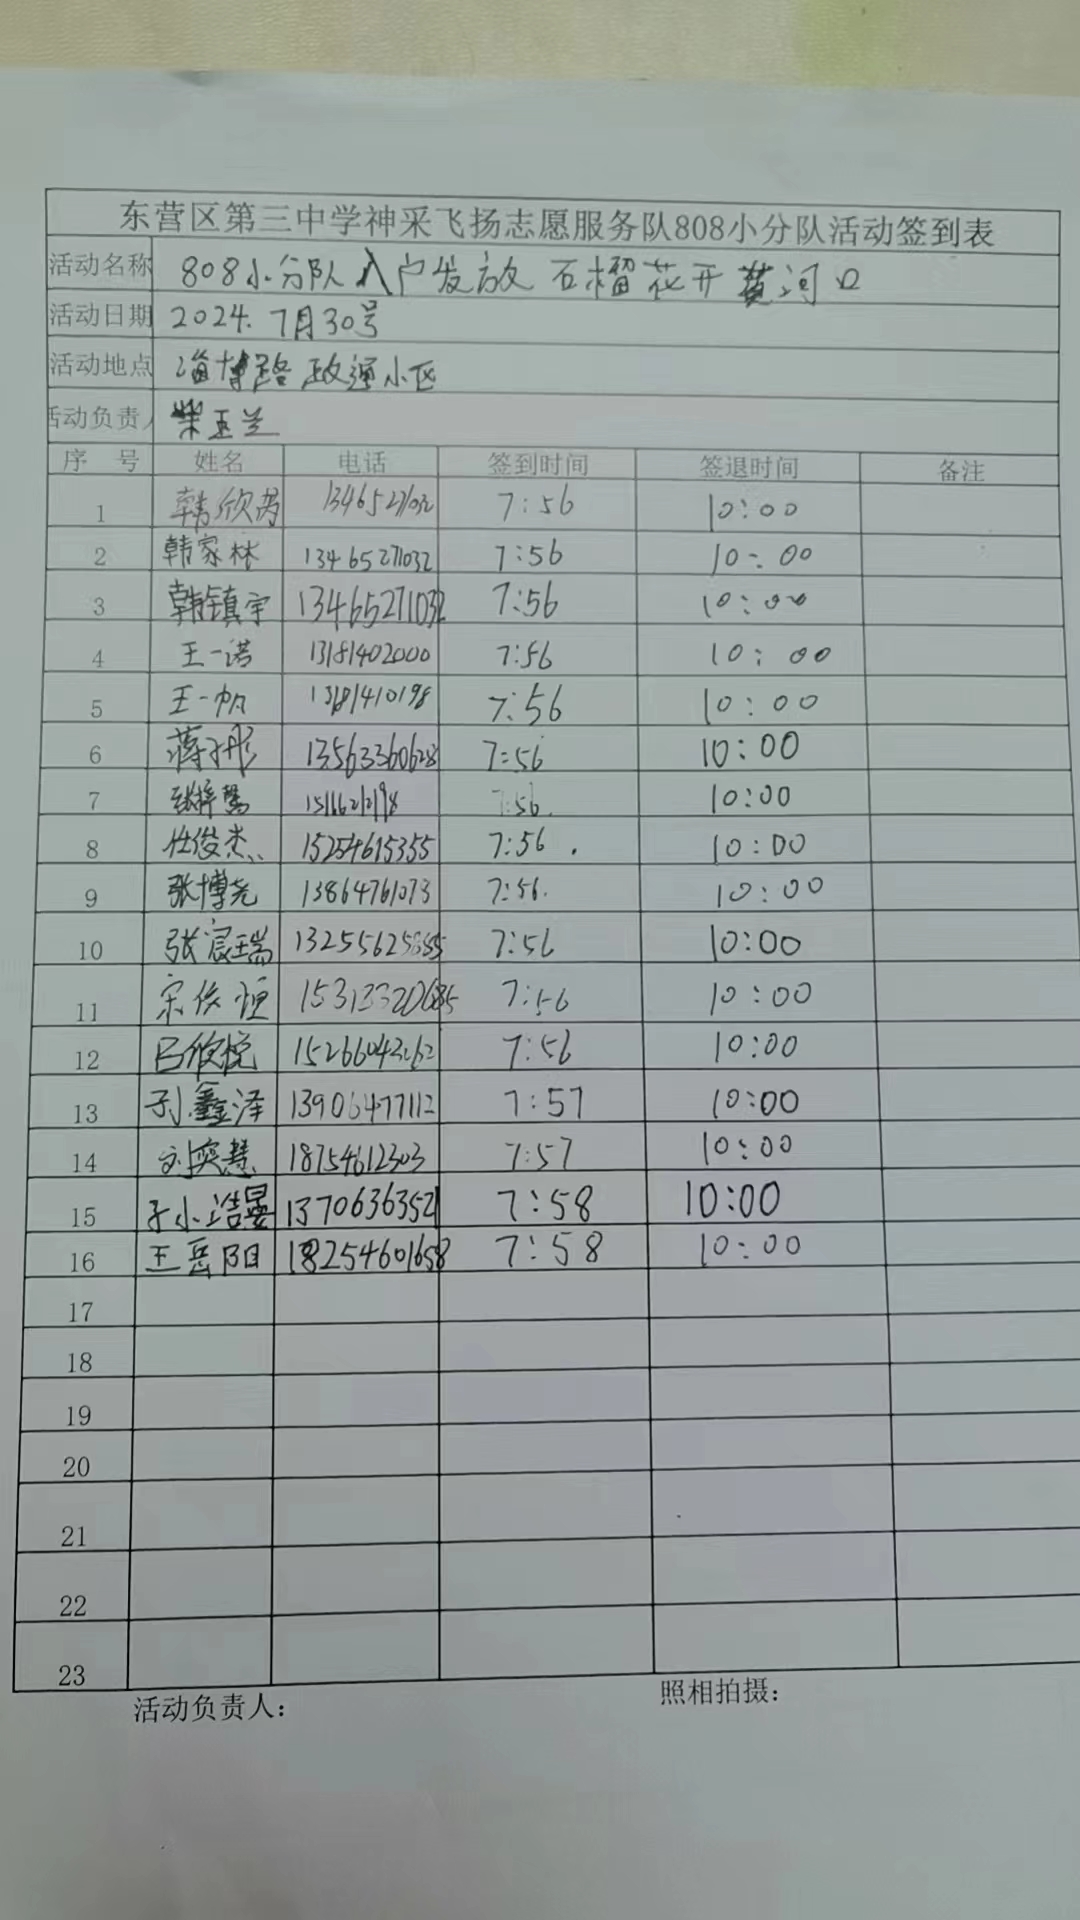 东营区第三中学神采飞扬志愿服务队808小分队活动签到表
活动名称 808小分队入户发放 石榴花开黄河口
活动日期 2024.7月30号
活动地点 淄博路政通小区
活动负责人 柴玉兰
序 号 姓名 电话 签到时间 签退时间 备注
1 韩欣芮 13465271032 7:56 10:00
2 韩家林 13465271032 7:56 10:00
3 韩镇宇 13465271032 7:56 10:00
4 王一诺 13181402000 7:56 10:00
5 王一帆 7:56 10:00
6 蒋子彤 13563360628 7:56 10:00
7 7:56. 10:00
8 任俊杰 15254615355 7:56. 10:00
9 张博尧 13864761073 7:56. 10:00
10 张宸瑞 7:56 10:00
11 宋俊恒 7:56 10:00
12 吕欣悦 7:56 10:00
13 孙鑫泽 13906477112 7:57 10:00
14 刘奕慧 18754612303 7:57 10:00
15 13706363521 7:58 10:00
16 王岳阳 18254601658 7:58 10:00
17
18
19
20
21
22
23
活动负责人: 照相拍摄: